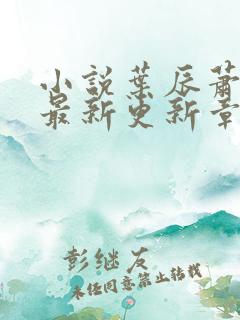 小说葉辰蕭
最新更新章
彭继友
未经同意禁止转载